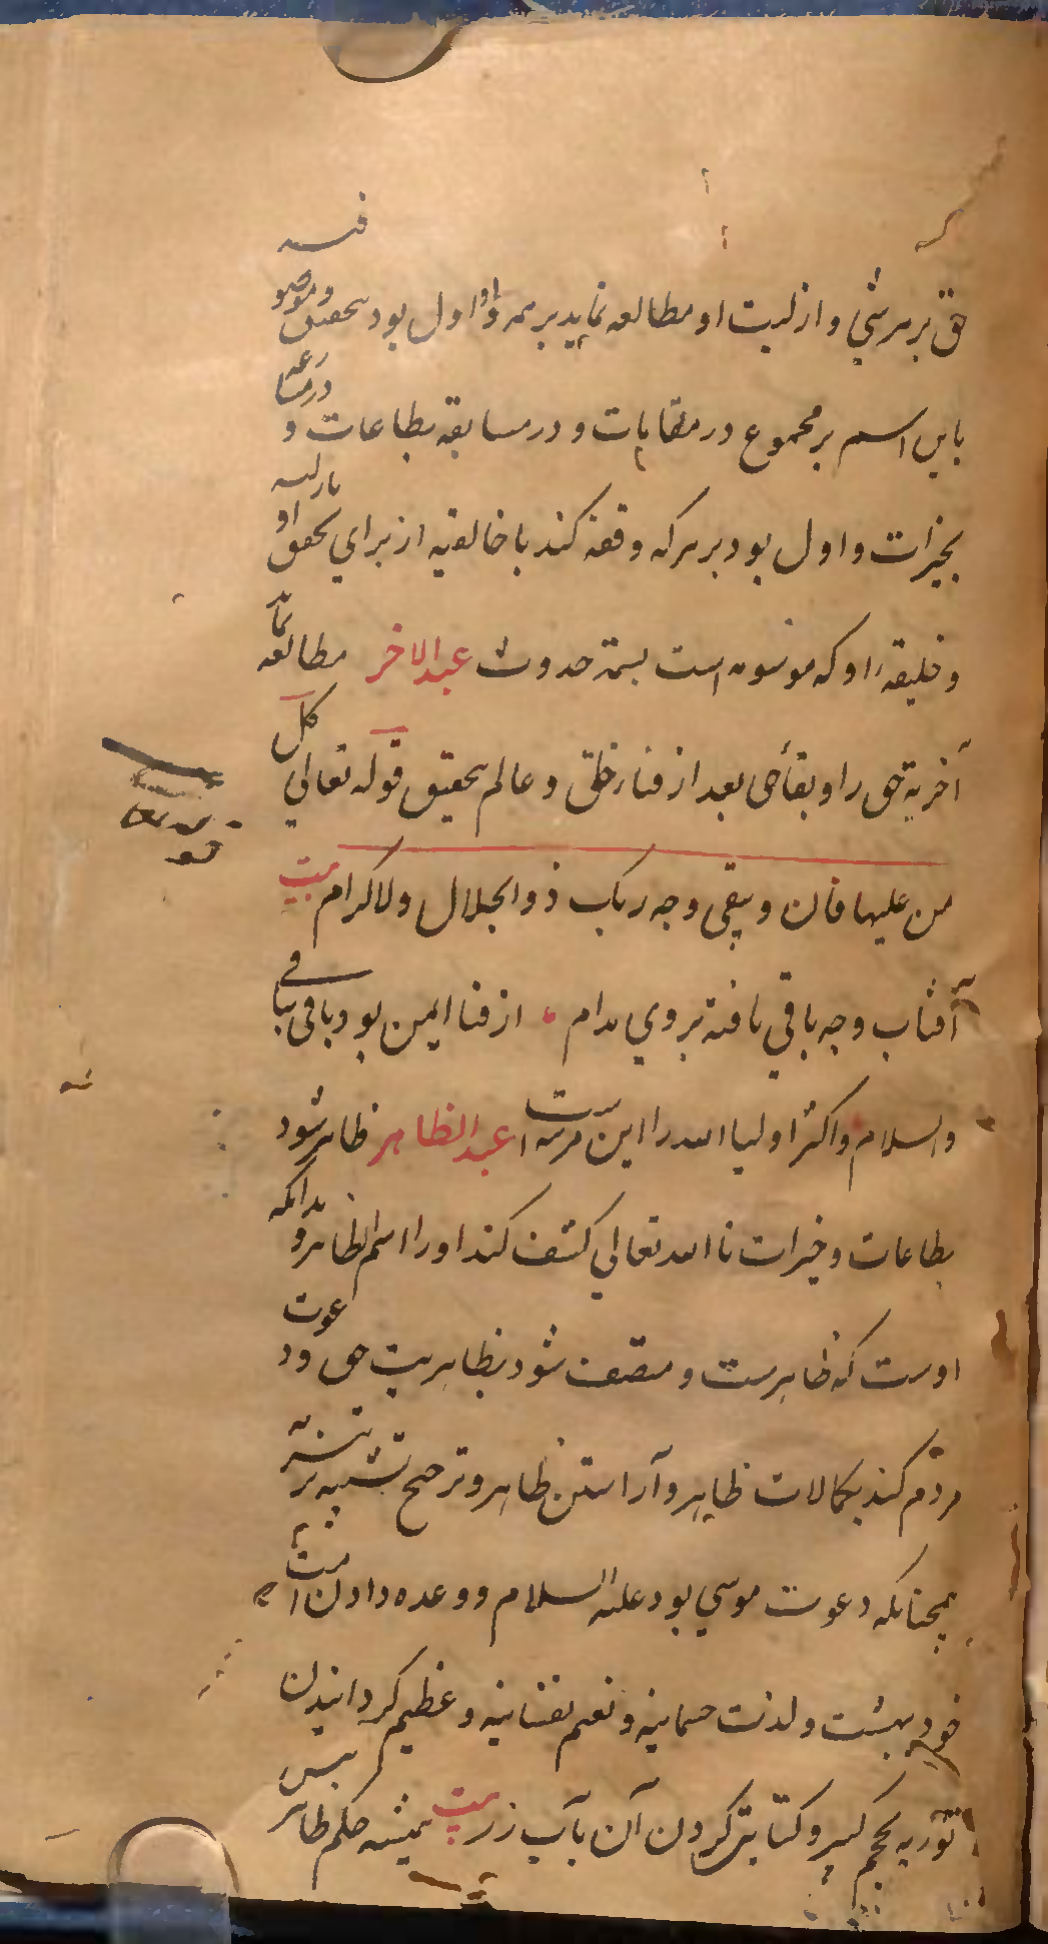 حق بر هر شئ و ازلیت او مطالعه نماید بر همه او اول بود بتحقیق
باین اسم بر مجموع در مقامات و در مسابقه بطاعات و
بخیرات و اول بود بر هر که وقفه کند با خالقیه از برای تحقق او
و خلیقه را و که موسومه است بسمة حدوث عبدالاخر مطالعه
آخریة حق را و بقأ حق بعد از فنا خلق و عالم بتحقیق قوله تعالی کل
من علیها فان و یبقی وجه ربک ذو الجلال ولاکرام بیت
آفتاب وجه باقی تافته بروی مدام از فنا ایمن بود باقی
والسلام و اکثر اولیا الله را این مرتبه است عبد الظاهر ظاهر شود
بطاعات و خیرات تا الله تعالی کشف کند او را اسم الظاهر و بدانکه
اوست که ظاهرست و متصف شود بظاهریت حق و دعوت
مردم کند بکمالات ظاهر و آراستن ظاهر و ترجیح تشبیه بر تنزیه
همچنانکه دعوت موسی بود علیه السلام و وعده دادن امت
خود بهشت و لذت جسمانیه و نعیم نفسانیه و عظیم گردانیدن
توریه بحجم کبیر و کتابت کردن آن بآب زر بیت همیشه حکم ظاهر